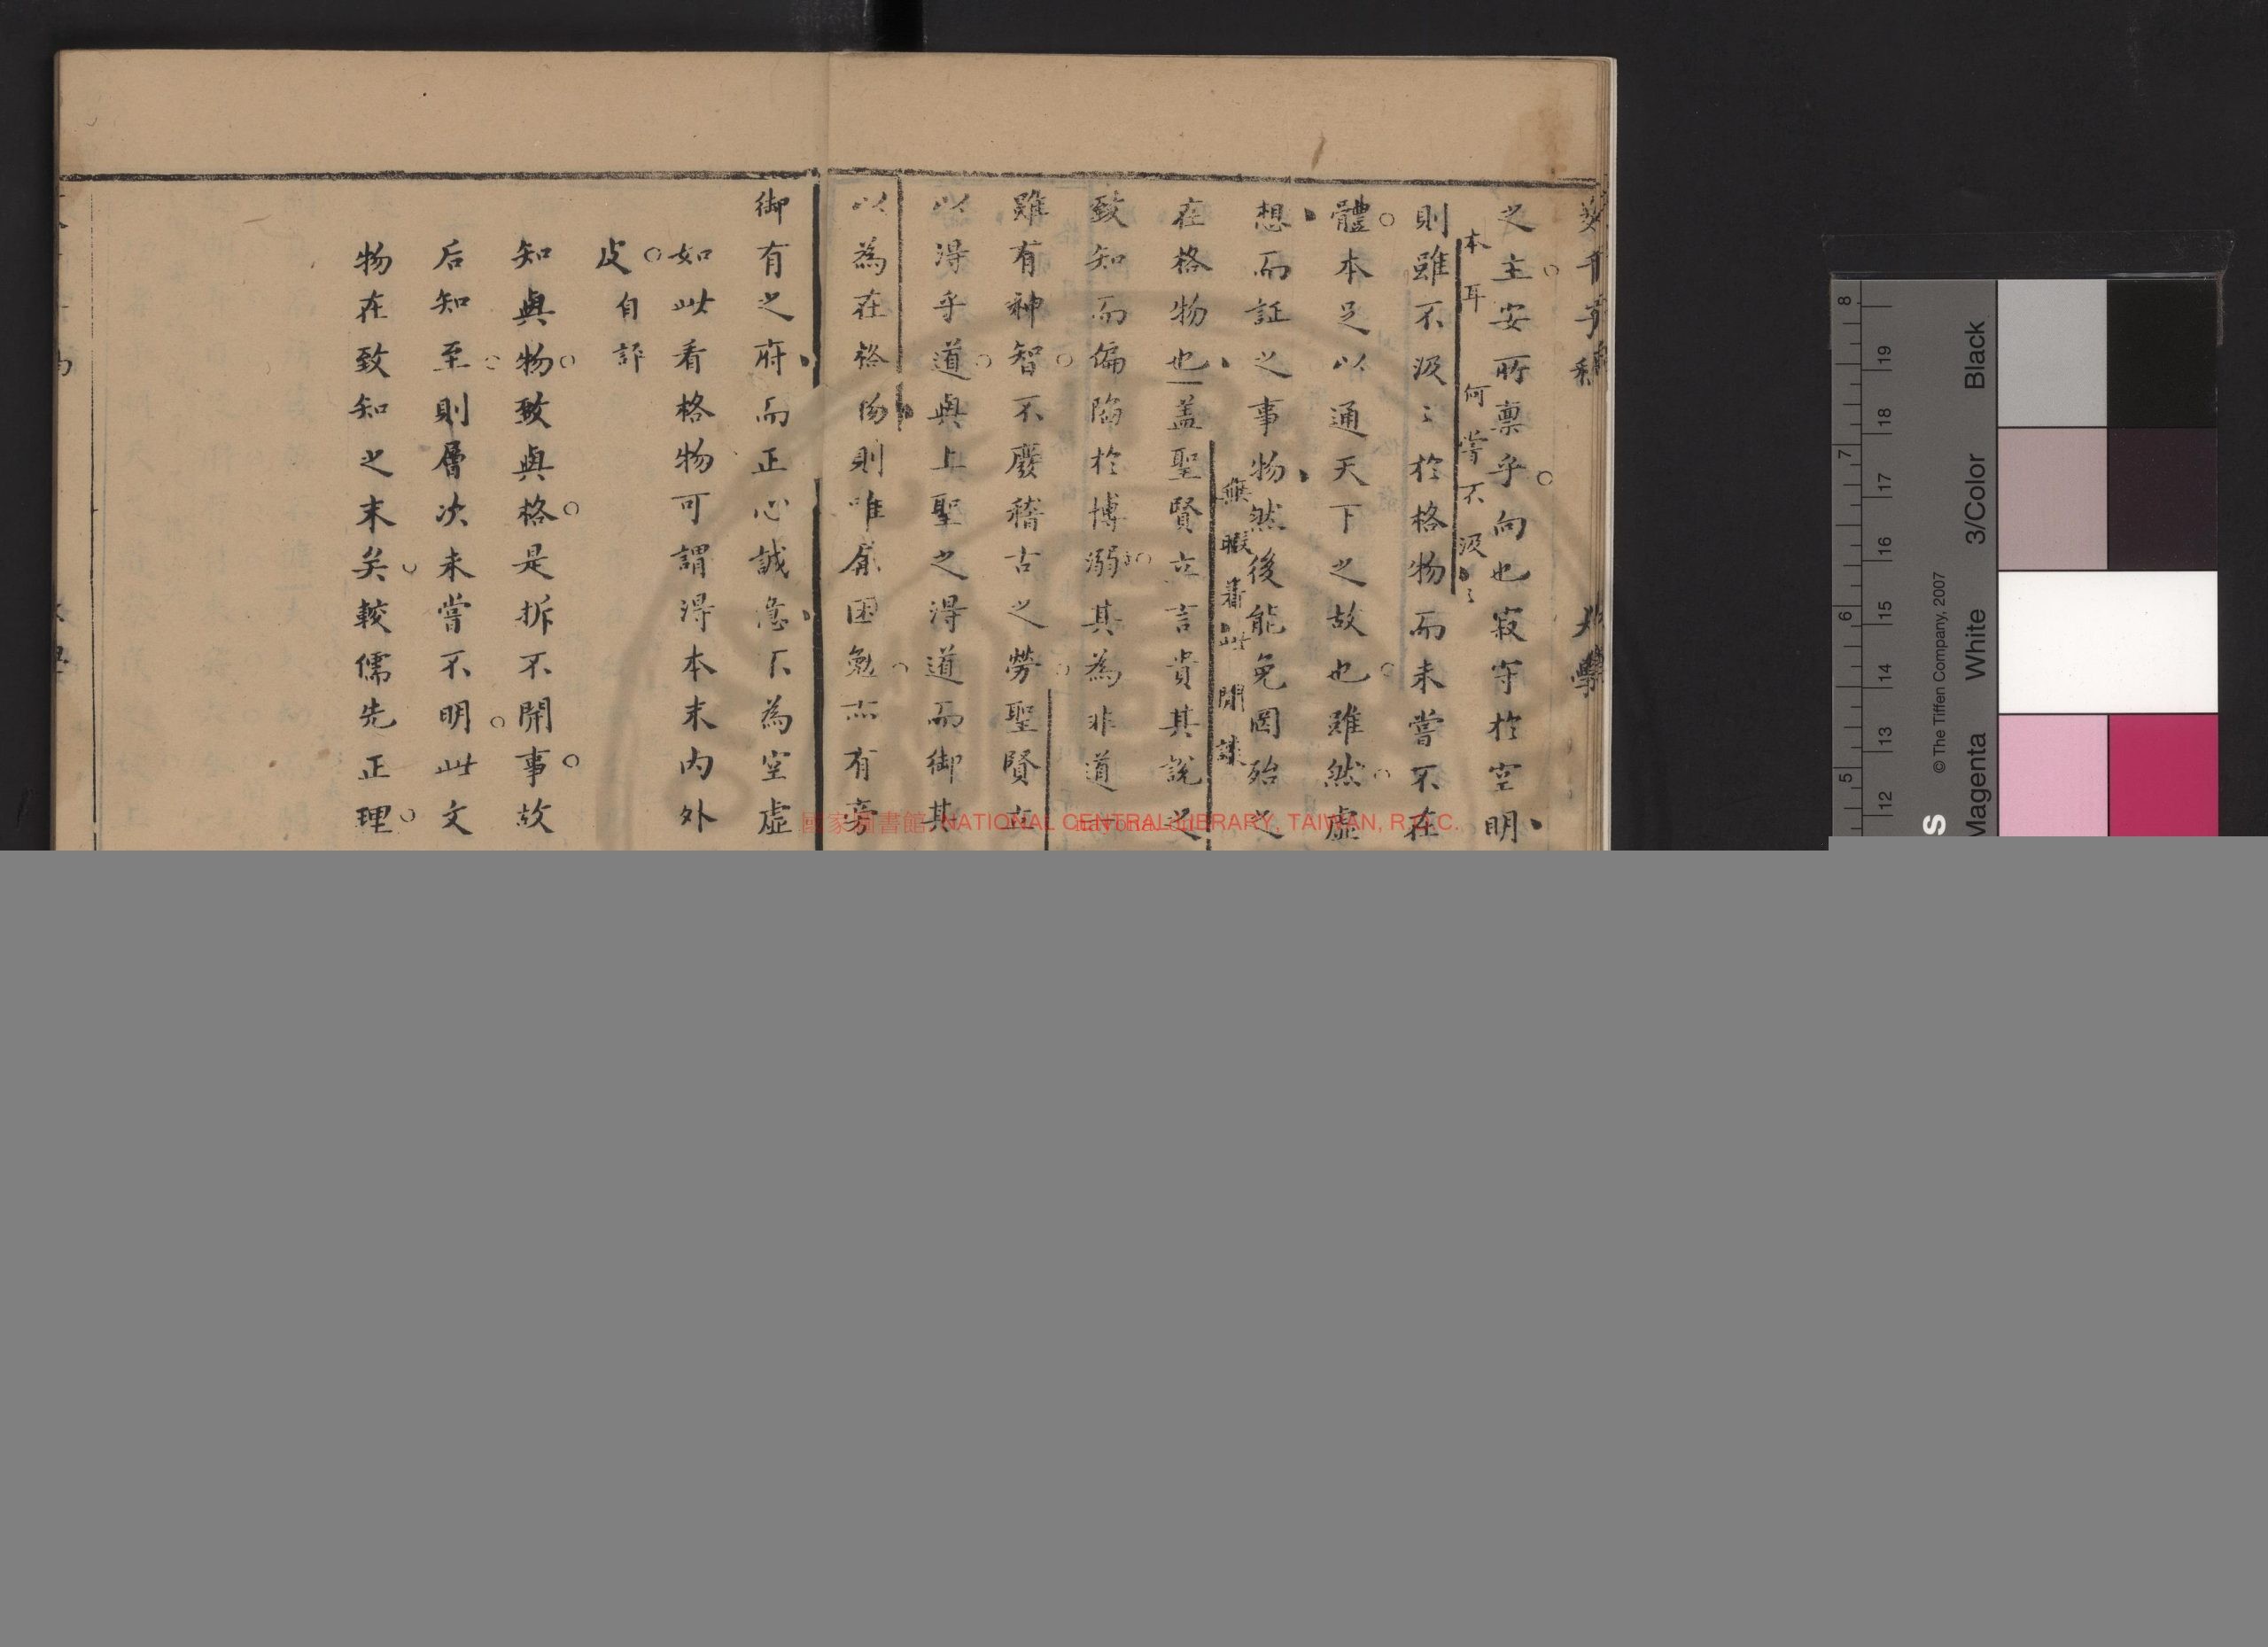 大學
之主安所禀乎向也寂守於空明
本耳何嘗不汲〻
則雖不汲〻於格物而未嘗不在
體本足以通天下之故也雖然虛
想而証之事物然後能免罔殆之
無暇着此閒談
在格物也蓋聖賢立言貴其說之
致知而偏陷於博溺其為非道
雖有神智不廢稽古之勞聖賢立
以得乎道與上聖之得道而御其
以為在格物則唯有困勉而有旁
御有之府而正心誠意不為空虛
如此看格物可謂得本末內外
皮
自評
知與物致與格是拆不開事故
后知至則層次未嘗不明此文
物在致知之末矣較儒先正理
國家圖書館, NATIONAL CENTRAL LIBRARY, TAIWAN, R.O.C.
8 7 6 5
19 18 17 16 15 14 13 12
© The Tiffen Company, 2007
Magenta White 3/Color Black